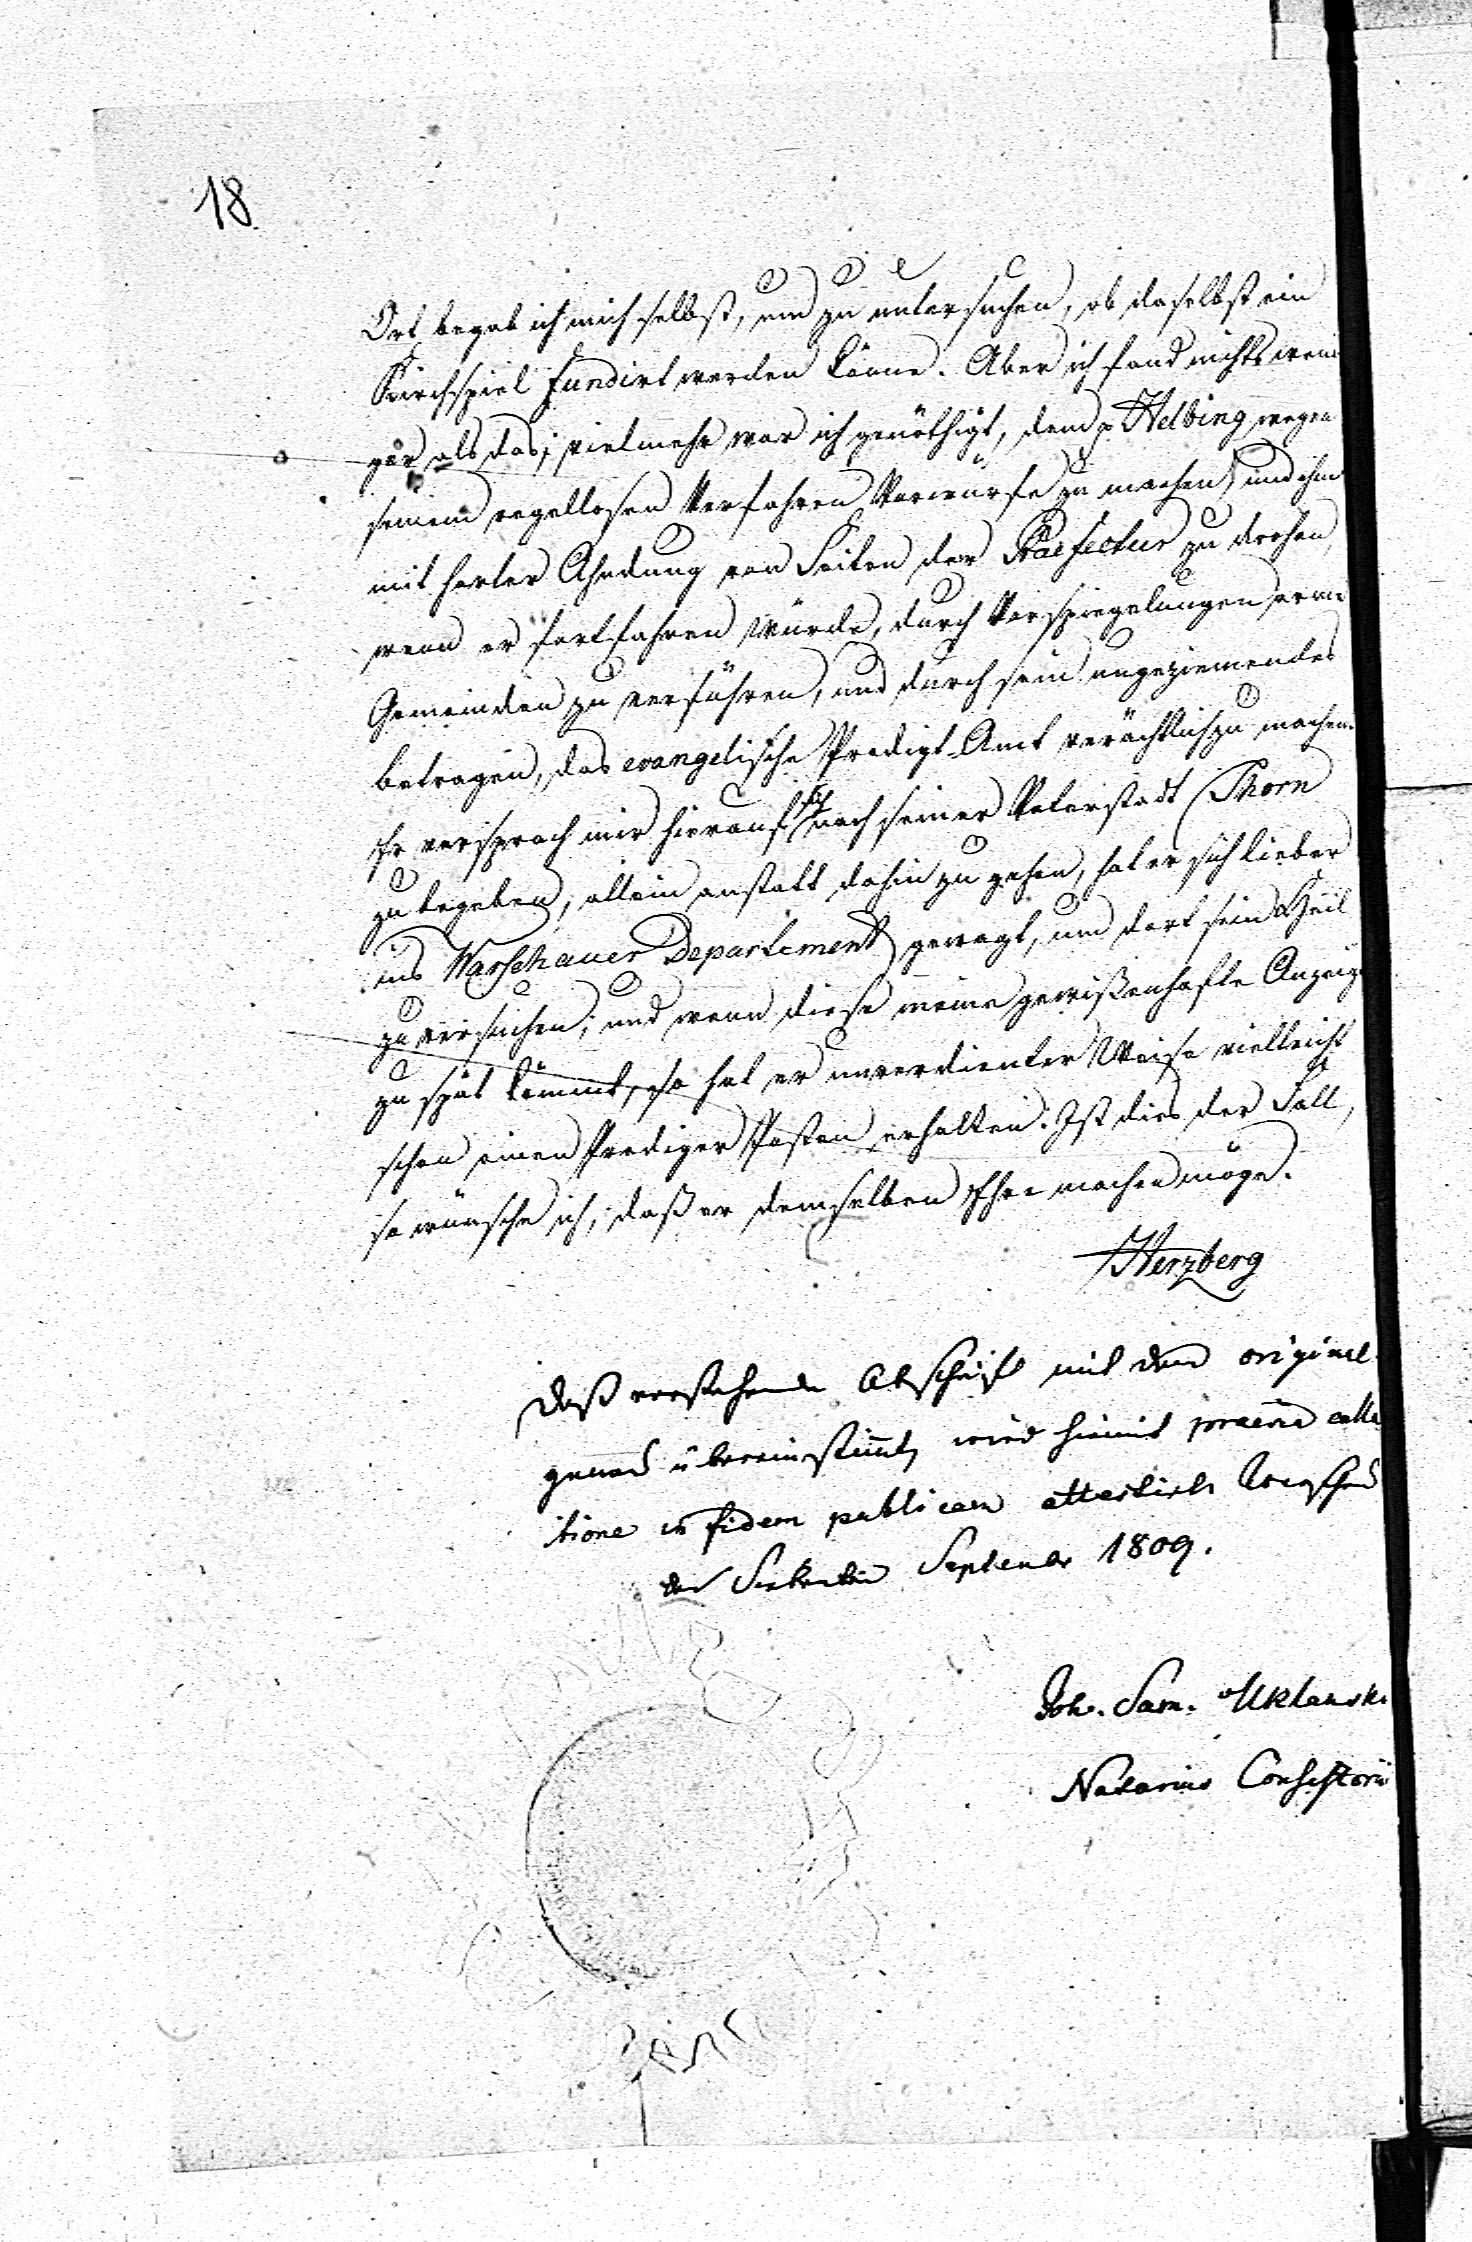 18
Ort begab ich mich selbst, um zu untersuchen, ob daselbst ein
Kirchspiel fundirt werden könne. Aber ich fand nichts weni
ger als das; vielmehr war ich genöthigt, dem p Helbing wegen
seinem regellosen Verfahren Vorwürfe zu machen, und ihm
mit harter Ahndung von Seiten der Praefectur zu drohen,
wenn er fortfahren würde, durch Vorspiegelungen arme
Gemeinden zu verführen, und durch sein ungeziemendes
betragen, das evangelische Predigt-Amt verächtlich zu machen.
Er versprach mir hierauf sich nach seiner Vaterstadt Thorn
zu begeben, allein anstatt dahin zu gehen, hat er sich lieber
ins Warschauer Departement gewagt, um dort sein Heil
zu versuchen; und wenn diese meine gewißenhafte Anzeige
zu spät kömmt, so hat er unverdienter Weise vielleicht
schon einen Prediger Posten erhalten. Ist dies der Fall,
so wünsche ich, daß er demselben Ehre machen möge.
Herzberg
Daß vorstehende Abschrift mit dem original
genau übereinstimmt, wird hiemit praevia colla
tione in fidem publicam attestirt. Warschau
den Siebenten September 1809.
Joh. Sam. Uklanski
Notarius Consistorii